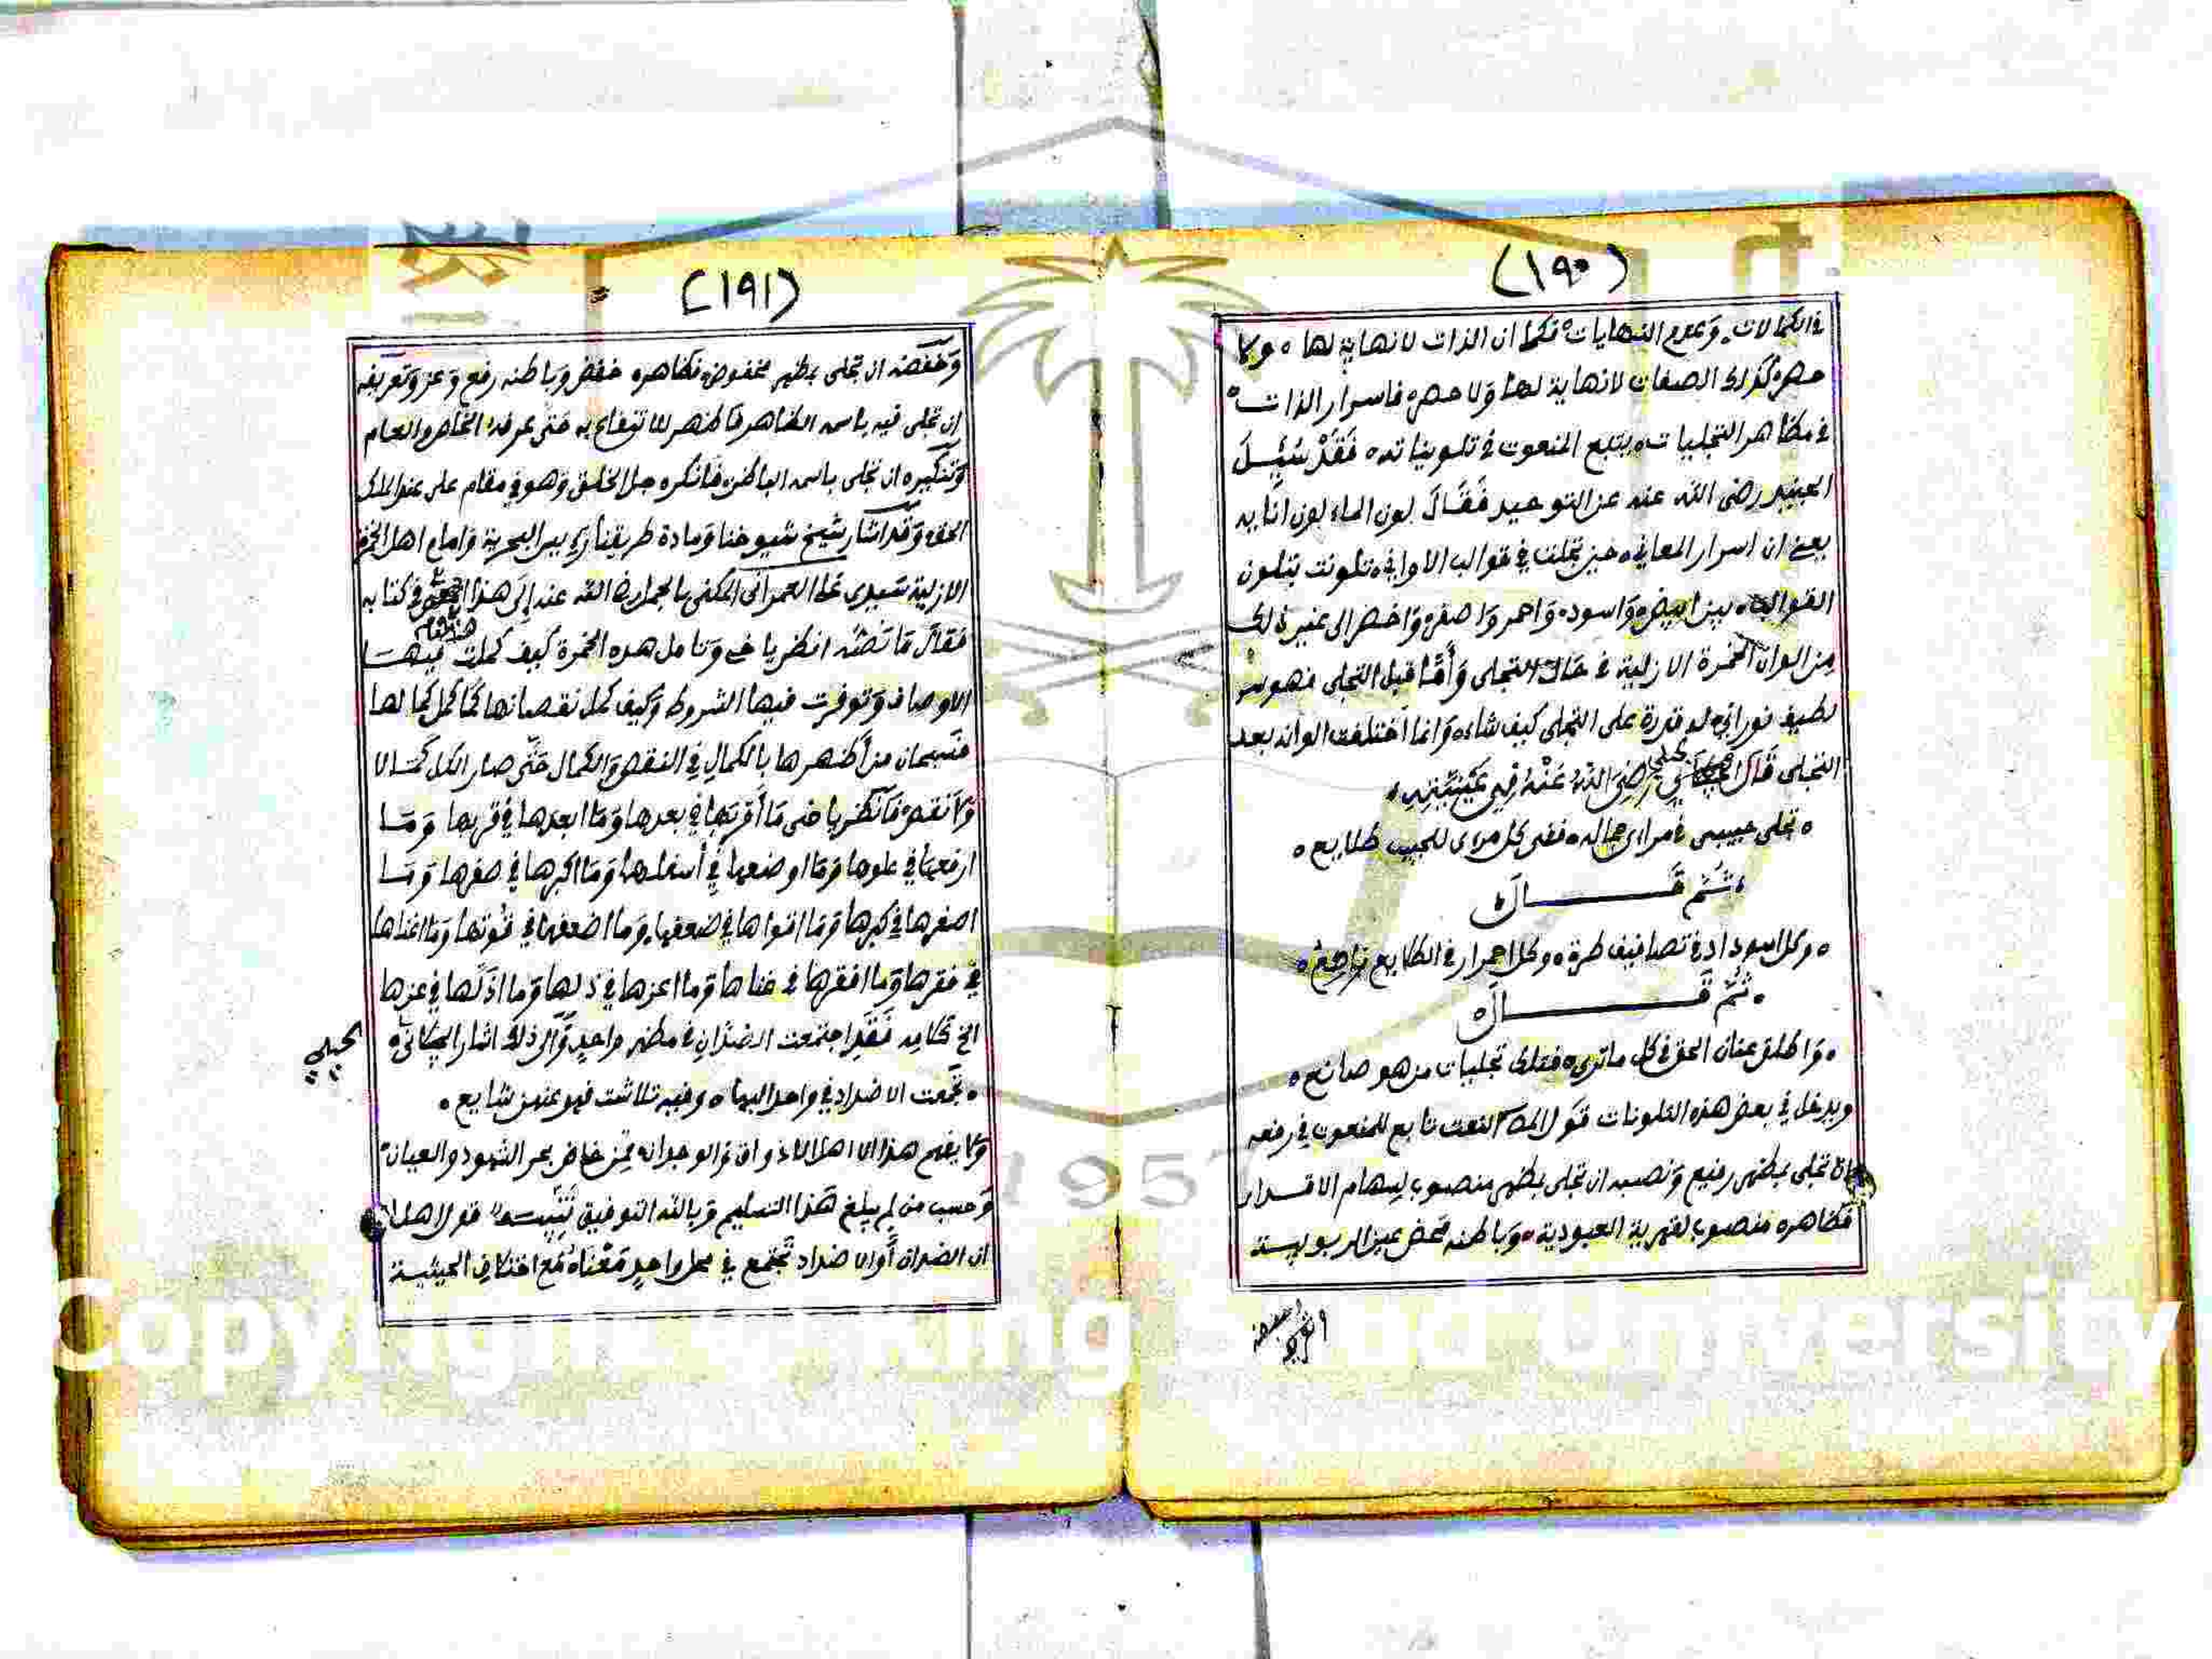 (١٩٠)
في الكمالات وعدم النهايات فكما ان الذات لا نهاية لها ولا
حصر كذلك الصفات لا نهاية لها ولا حصر فاسرار الذات
في مظاهر التجليات يتبع المنعوت في تلويناته فقد سئل
الجنيد رضي الله عنه عن التوحيد فقال لون الماء لون انايه
يعني ان اسرار المعاني حين تجلت في قوالب الاواني تلونت بتلون
القوالب بين ابيض واسود واحمر واصفر واخضر الى غير ذلك
من الوان الخمرة الازلية في حال التجلي واما قبل التجلي فهو سر
لطيف نوراني له قدرة على التجلي كيف شاء وانما اختلفت الوانه بعد
التجلي قال الجيلي رضي الله عنه في عينيته
تجلى حبيبي في مراءى جماله ففي كل مرءى للحبيب طلايع
ثم قال
وكل اسوداد في تصافيف طرة وكل احمرار في الطلايع ناصع
ثم قال
واطلق عنان الحق في كل ما ترى فتلك تجليات من هو صانع
ويدخل في بعض هذه التلونات قول المص النعت تابع للمنعوت في رفعه
ان تجلى بمظهر رفيع ونصبه ان تجلى بمظهر منصوب لسهام الاقدار
فظاهره منصوب لقهرية العبودية وباطنه محض عين الربوبية
وخفضه
(١٩١)
وخفضه ان تجلى بمظهر مخفوض فظاهره خفض وباطنه رفع وعز وتعريفه
ان تجلى فيه باسمه الظاهر فاظهر للانتفاع به حتى عرفه الخاص والعام
وتنكيره ان تجلى باسمه الباطن فانكره جل الخلق وهو في مقام علي عند الملك
الحق وقد اشار شيخ شيوخنا ومادة طريقنا البحرية وامام اهل الخمرة
الازلية سيدي علي العمراني المكنى بالجمل رضي الله عنه إلى هذا في كتابه
فقال ما نصه انظر يا خي وتامل هذه الخمرة كيف كملت فيها
الاوصاف وتوفرت فيها الشروط وكيف كمل نقصانها كما كمل كمالها
فسبحان من اظهرها بالكمال في النقص والكمال حتى صار الكل كمالا
ولا نقص فانظر يا خي ما أقربها في بعدها وما ابعدها في قربها وما
ارفعها في علوها وما اوضعها في أسفلها وما اكبرها في صغرها وما
اصغرها في كبرها وما اقواها في ضعفها وما اضعفها في قوتها وما اغناها
في فقرها وما افقرها في غناها وما اعزها في ذلها وما اذلها في عزها
الخ كلامه فقد اجتمعت الضدان في مظهر واحد والى ذلك اشار
الجيلي
تجمعت الاضداد في واحد البها وفيه تلاشت فهو عنهن شايع
ولا يفهم هذا الا اهل الاذواق والوجدان ممن خاض بحر الشهود والعيان
وحسب من لم يبلغ هذا التسليم وبالله التوفيق تنبيه قول اهل
ان الضدان أو الاضداد تجتمع في محل واحد معناه مع اختلاف الحيثية
1957
Copyright © King Saud University